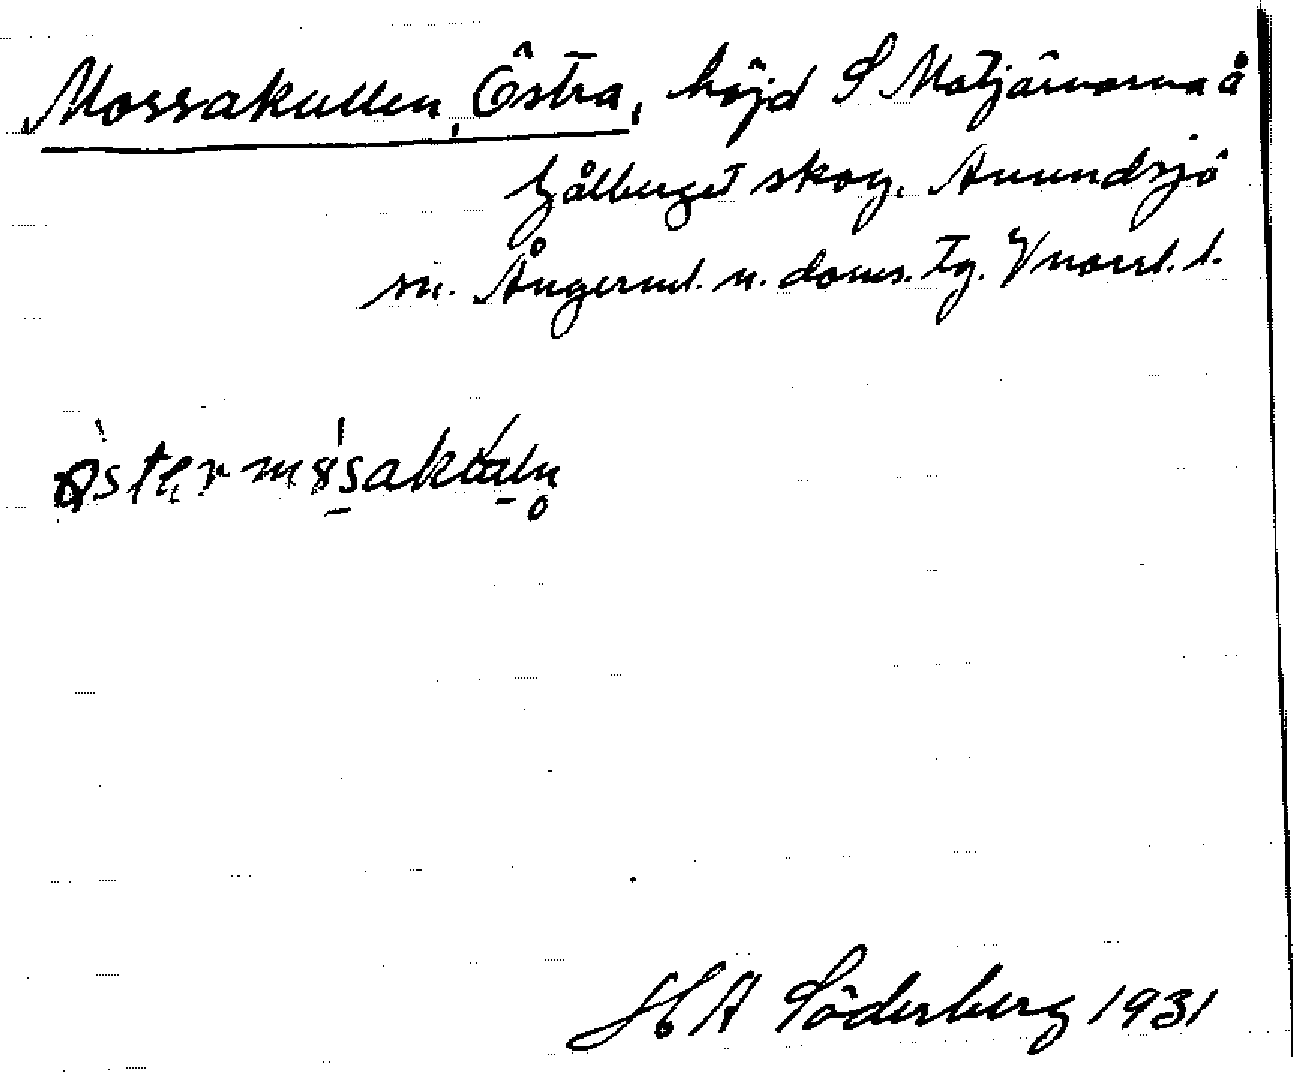 Mossakullen, Östra, höjd S Motjärnarna å
hålberget skog. Anundsjö
sn. Ångerml. n. doms. tg. Vnorrl. l.
östermosakḷaln
H A Söderberg 1931